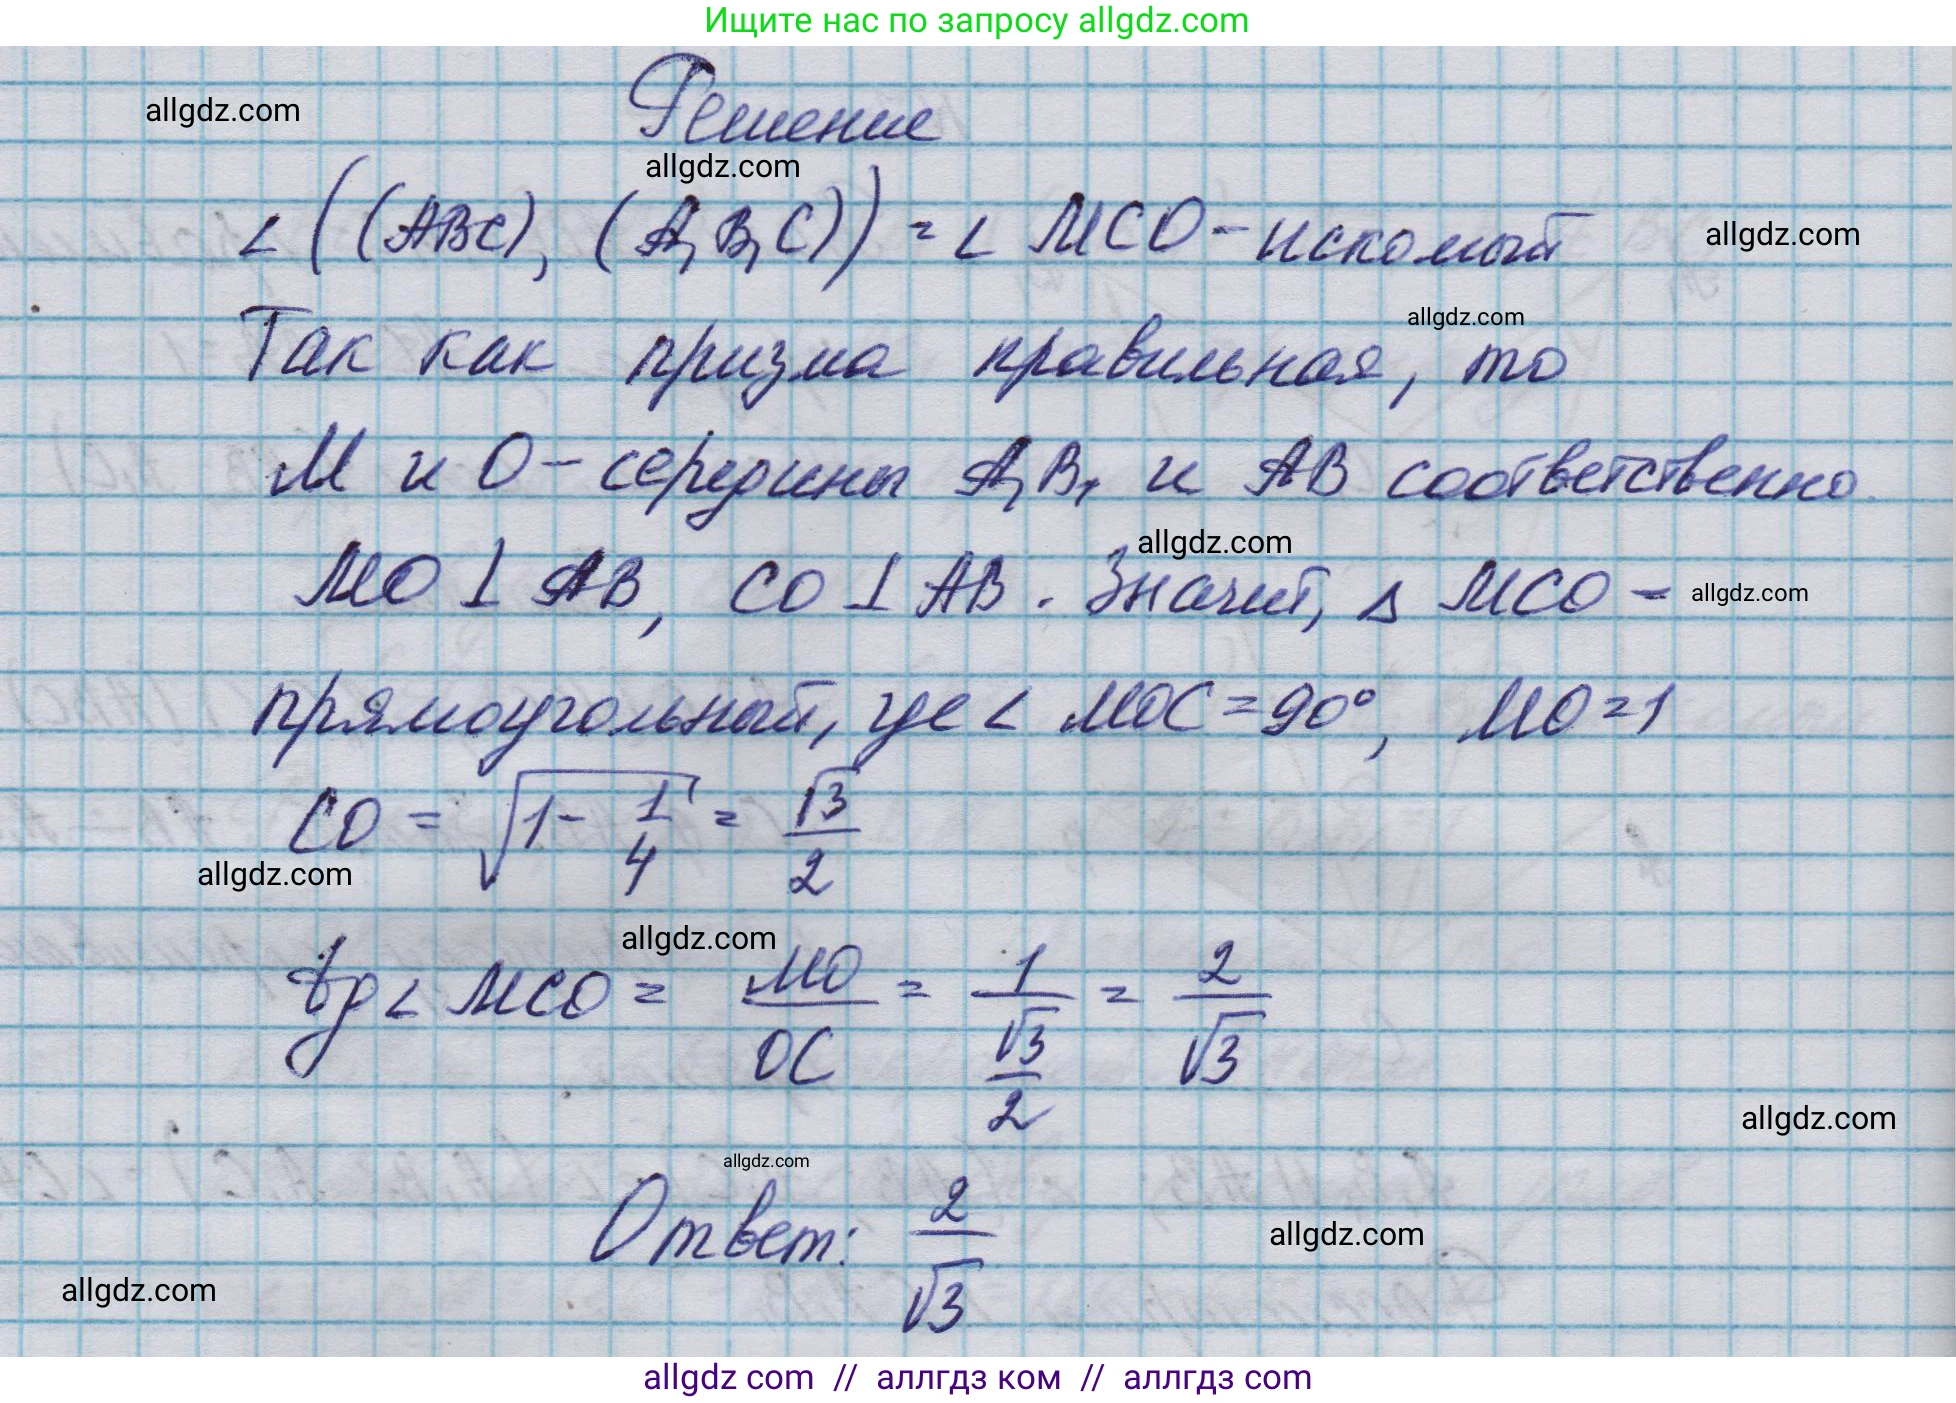 Ищите нас по запросу allgdz.com
allgdz.com
Решение
allgdz.com
∠((ABC), (A₁B₁C)) = ∠ MCO - искомый
allgdz.com
allgdz.com
Так как призма правильная, то
M и O - середины A₁B₁ и AB соответственно.
allgdz.com
MO ⊥ AB, CO ⊥ AB. Значит, △ MCO -
allgdz.com
прямоугольный, где ∠ MOC = 90°, MO = 1
CO = √(1 - 1/4) = √3/2
allgdz.com
allgdz.com
tg ∠ MCO = MO/OC = 1/(√3/2) = 2/√3
allgdz.com
allgdz.com
Ответ: 2/√3
allgdz.com
allgdz.com
allgdz com // аллгдз ком // аллгдз com